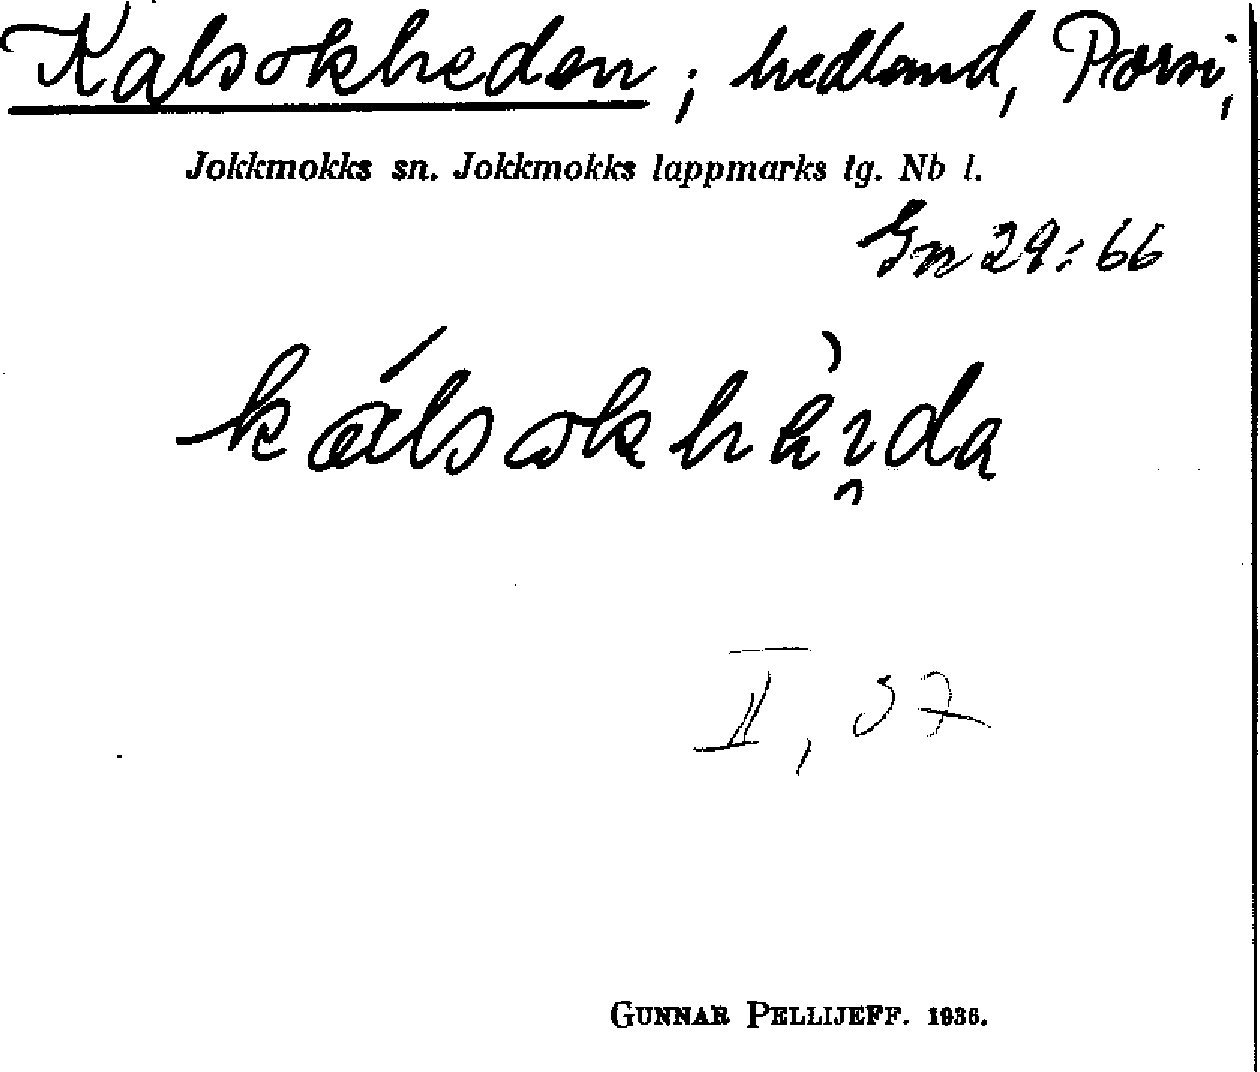 Kalsokheden; hedland, Porsi,
Jokkmokks sn. Jokkmokks lappmarks tg. Nb l.
Gn 29:66
II, 37
GUNNAR PELLIJEFF. 1936.